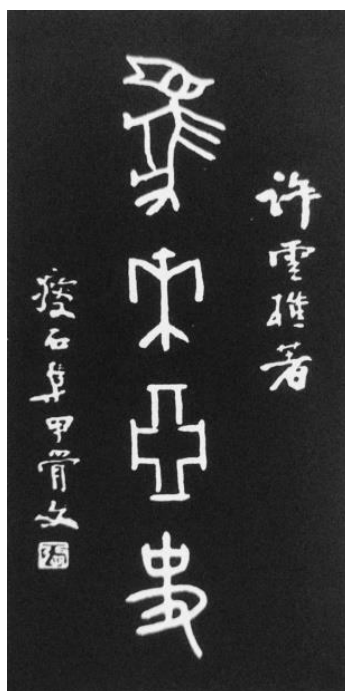 許雲樵著
馬來亞史
瘦石集甲骨文